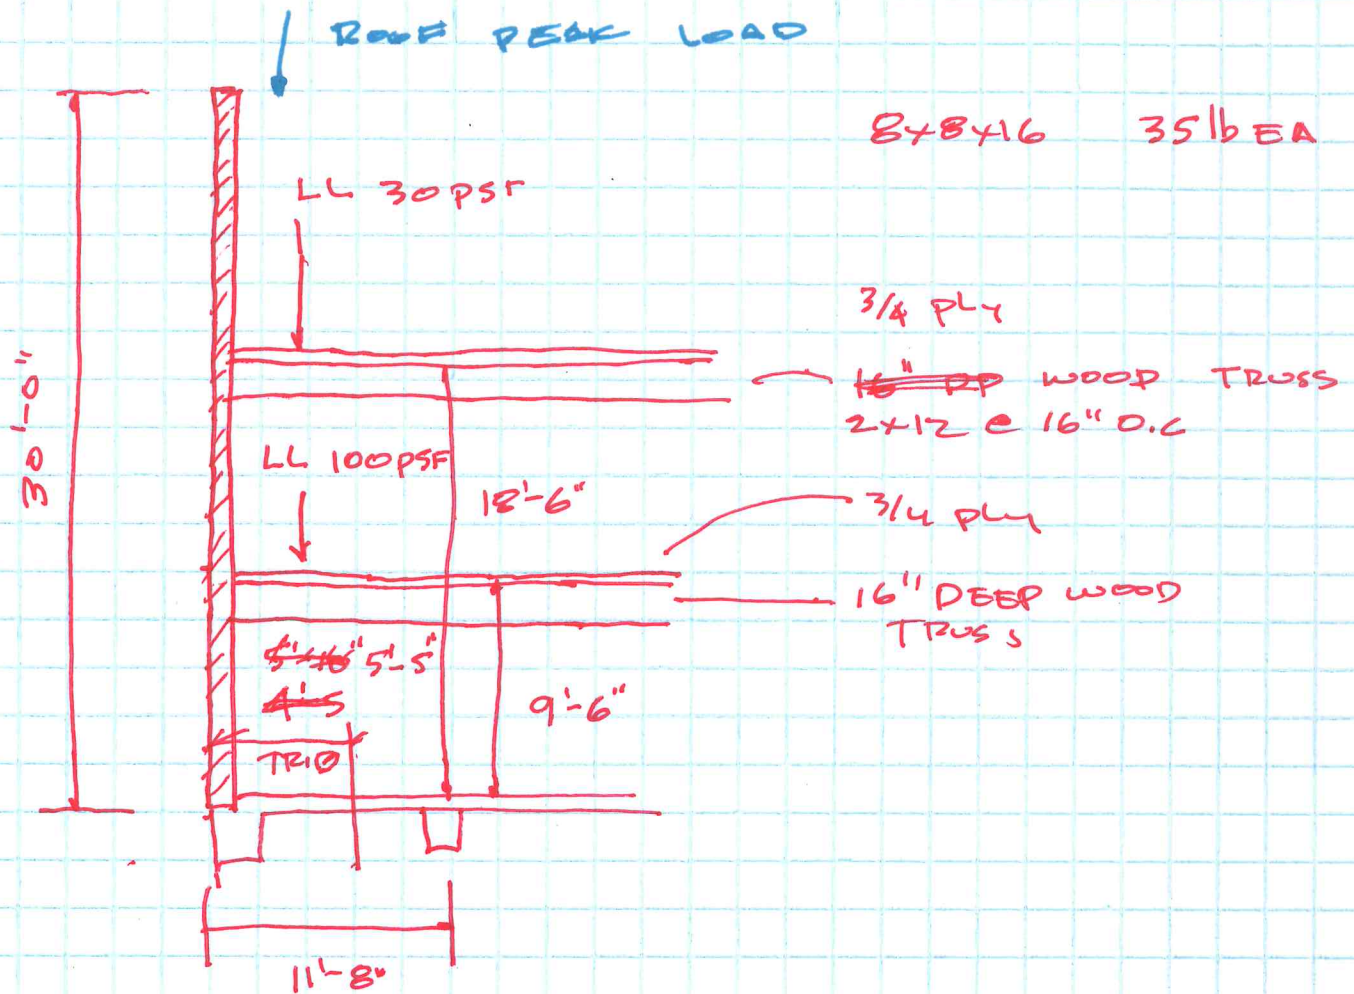 ROOF PEAK LOAD
8x8x16 35 lb EA
LL 30 PSF
3/4 PLY
16" DP WOOD TRUSS
2x12 @ 16" O.C
30'-0"
LL 100PSF
18'-6"
3/4 PLY
16" DEEP WOOD
TRUSS
5'-5"
4'-5
9'-6"
TRIB
11'-8"